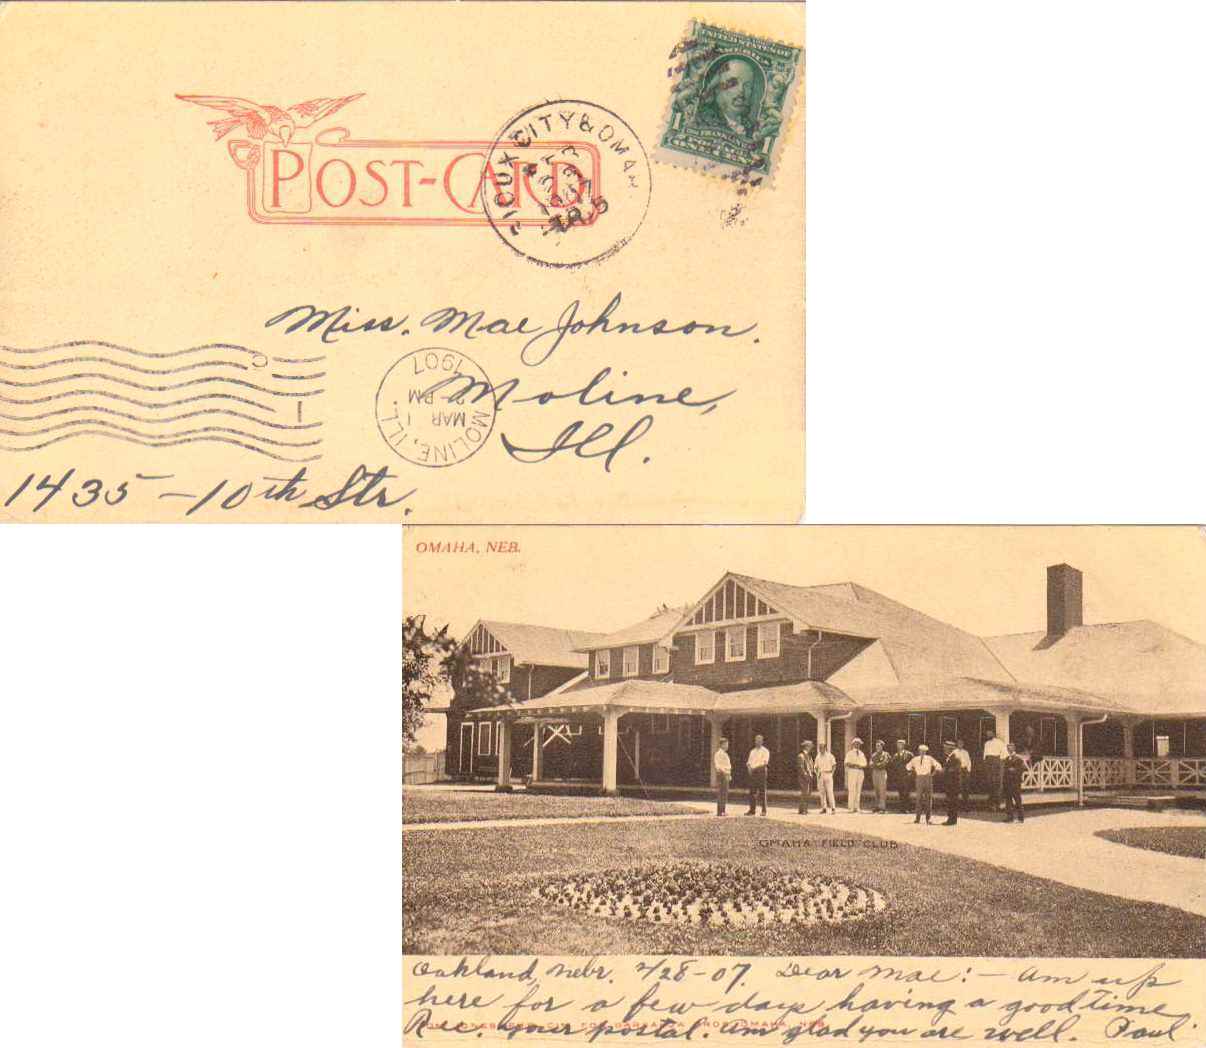 1
UNITED STATES OF AMERICA
1 1
POST-CARD
SIOUX CITY & OMAHA
TR. 5
Miss. Mae Johnson.
Moline,
Ill.
MOLINE, ILL.
MAR 1
2 PM
1907
1435-10th Str.
OMAHA, NEB.
OMAHA FIELD CLUB
Oakland, Nebr. 2/28-07. Dear Mae:- Am up
here for a few days having a good time.
Rec. your postal. Am glad you are well. Paul
OMAHA, NEB.